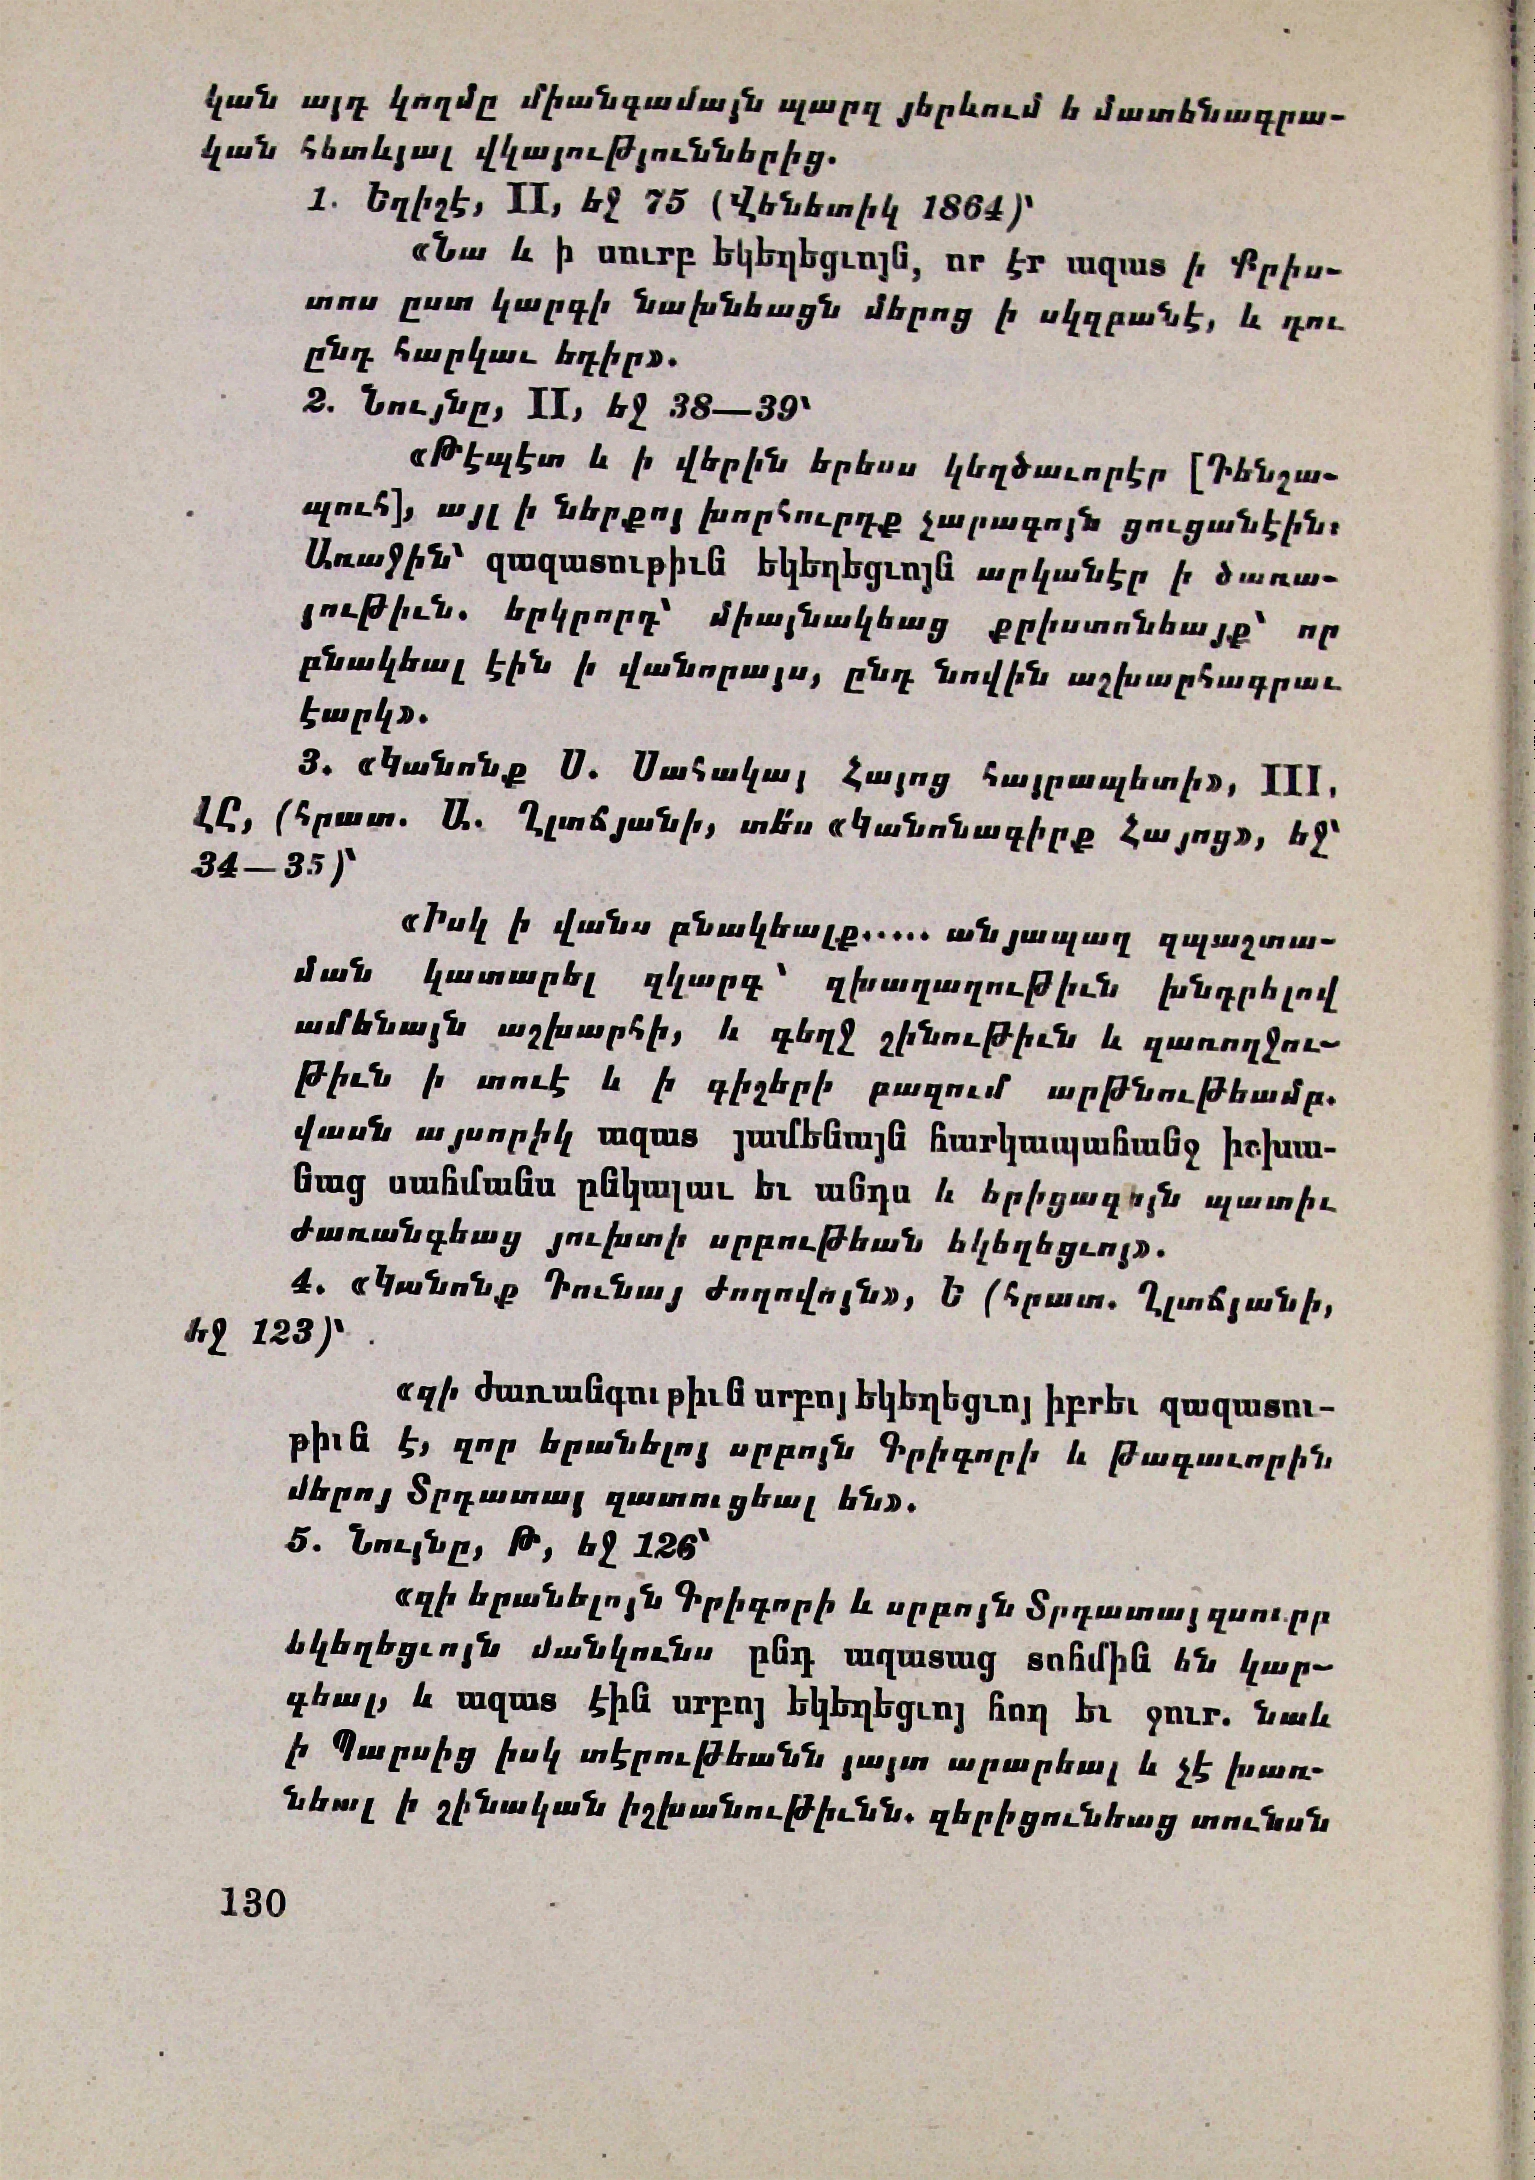 կան այդ կողմը միանգամայն պարզ յերևում ե մատենագրա-
կան հետևյալ վկայություններից.
1. Եղիշէ, II, եջ 75 (Վենետիկ 1864)՝
«Նա և ի սուրբ եկեղեցւոյն, որ էր ազատ ի Քրիս-
տոս ըստ կարգի նախնեացն մերոց ի սկզբանէ, և դու
ընդ հարկաւ եդիր».
2. Նույնը, II, եջ 38—39՝
«Թէպէտ և ի վերին երեսս կեղծաւորէր [Դենշա-
պուհ], այլ ի ներքոյ խորհուրդք չարագոյն ցուցանէին:
Առաջին՝ զազատութիւն եկեղեցւոյն արկանէր ի ծառա-
յութիւն. երկրորդ՝ միայնակեաց քրիստոնեայք՝ որ
բնակեալ էին ի վանորայս, ընդ նովին աշխարհագրաւ
էարկ».
3. «Կանոնք Ս. Սահակայ Հայոց հայրապետի», III,
ԼԸ, (հրատ. Ա. Ղլտճյանի, տե՛ս «Կանոնագիրք Հայոց», եջ՝
34—35)՝
«Իսկ ի վանս բնակեալք..... անյապաղ զպաշտա-
ման կատարել զկարգ՝ զխաղաղութիւն խնդրելով
ամենայն աշխարհի, և գեղջ շինութիւն և զառողջու-
թիւն ի տուէ և ի գիշերի բազում արթնութեամբ.
վասն այսորիկ ազատ յամենայն հարկապահանջ իշխա-
նաց սահմանս ընկալաւ եւ անդս և երիցագոյն պատիւ
ժառանգեաց յուխտի սրբութեան եկեղեցւոյ».
4. «Կանոնք Դունայ ժողովոյն», Ե (հրատ. Ղլտճյանի,
եջ 123)՝
«զի ժառանգութիւն սրբոյ եկեղեցւոյ իբրեւ զազատու-
թիւն է, զոր երանելոյ սրբոյն Գրիգորի և թագաւորին
մերոյ Տրդատայ զատուցեալ են».
5. Նույնը, Թ, եջ 126՝
«զի երանելոյն Գրիգորի և սրբոյն Տրդատայ զսուրբ
եկեղեցւոյն մանկունս ընդ ազատաց տոհմին են կար-
գեալ, և ազատ էին սրբոյ եկեղեցւոյ հող եւ ջուր. նաև
ի Պարսից իսկ տէրութեանն յայտ արարեալ և չէ խառ-
նեալ ի շինական իշխանութիւնն. զերիցունեաց տունսն
130